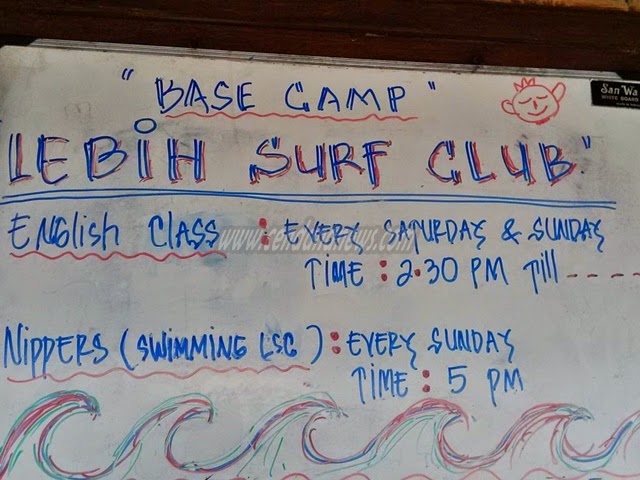 "BASE CAMP"
San Wa
WHITE BOARD
LEBiH SURF CLUB"
ENGlish ClASS : EVERY SATURDAY & SUNDAY
TIME : 2.30 PM Till ----
NippERS (SWIMMING LSC) : EVERY SUNDAY
TIME : 5 PM